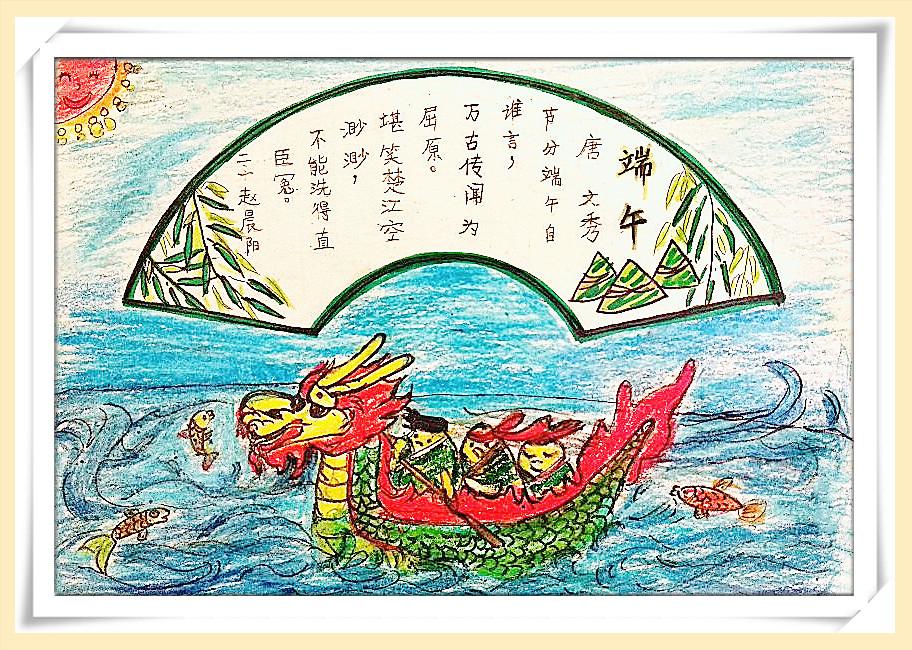 端午
唐 文秀
节分端午自
谁言，
万古传闻为
屈原。
堪笑楚江空
渺渺，
不能洗得直
臣冤。
二二赵晨阳